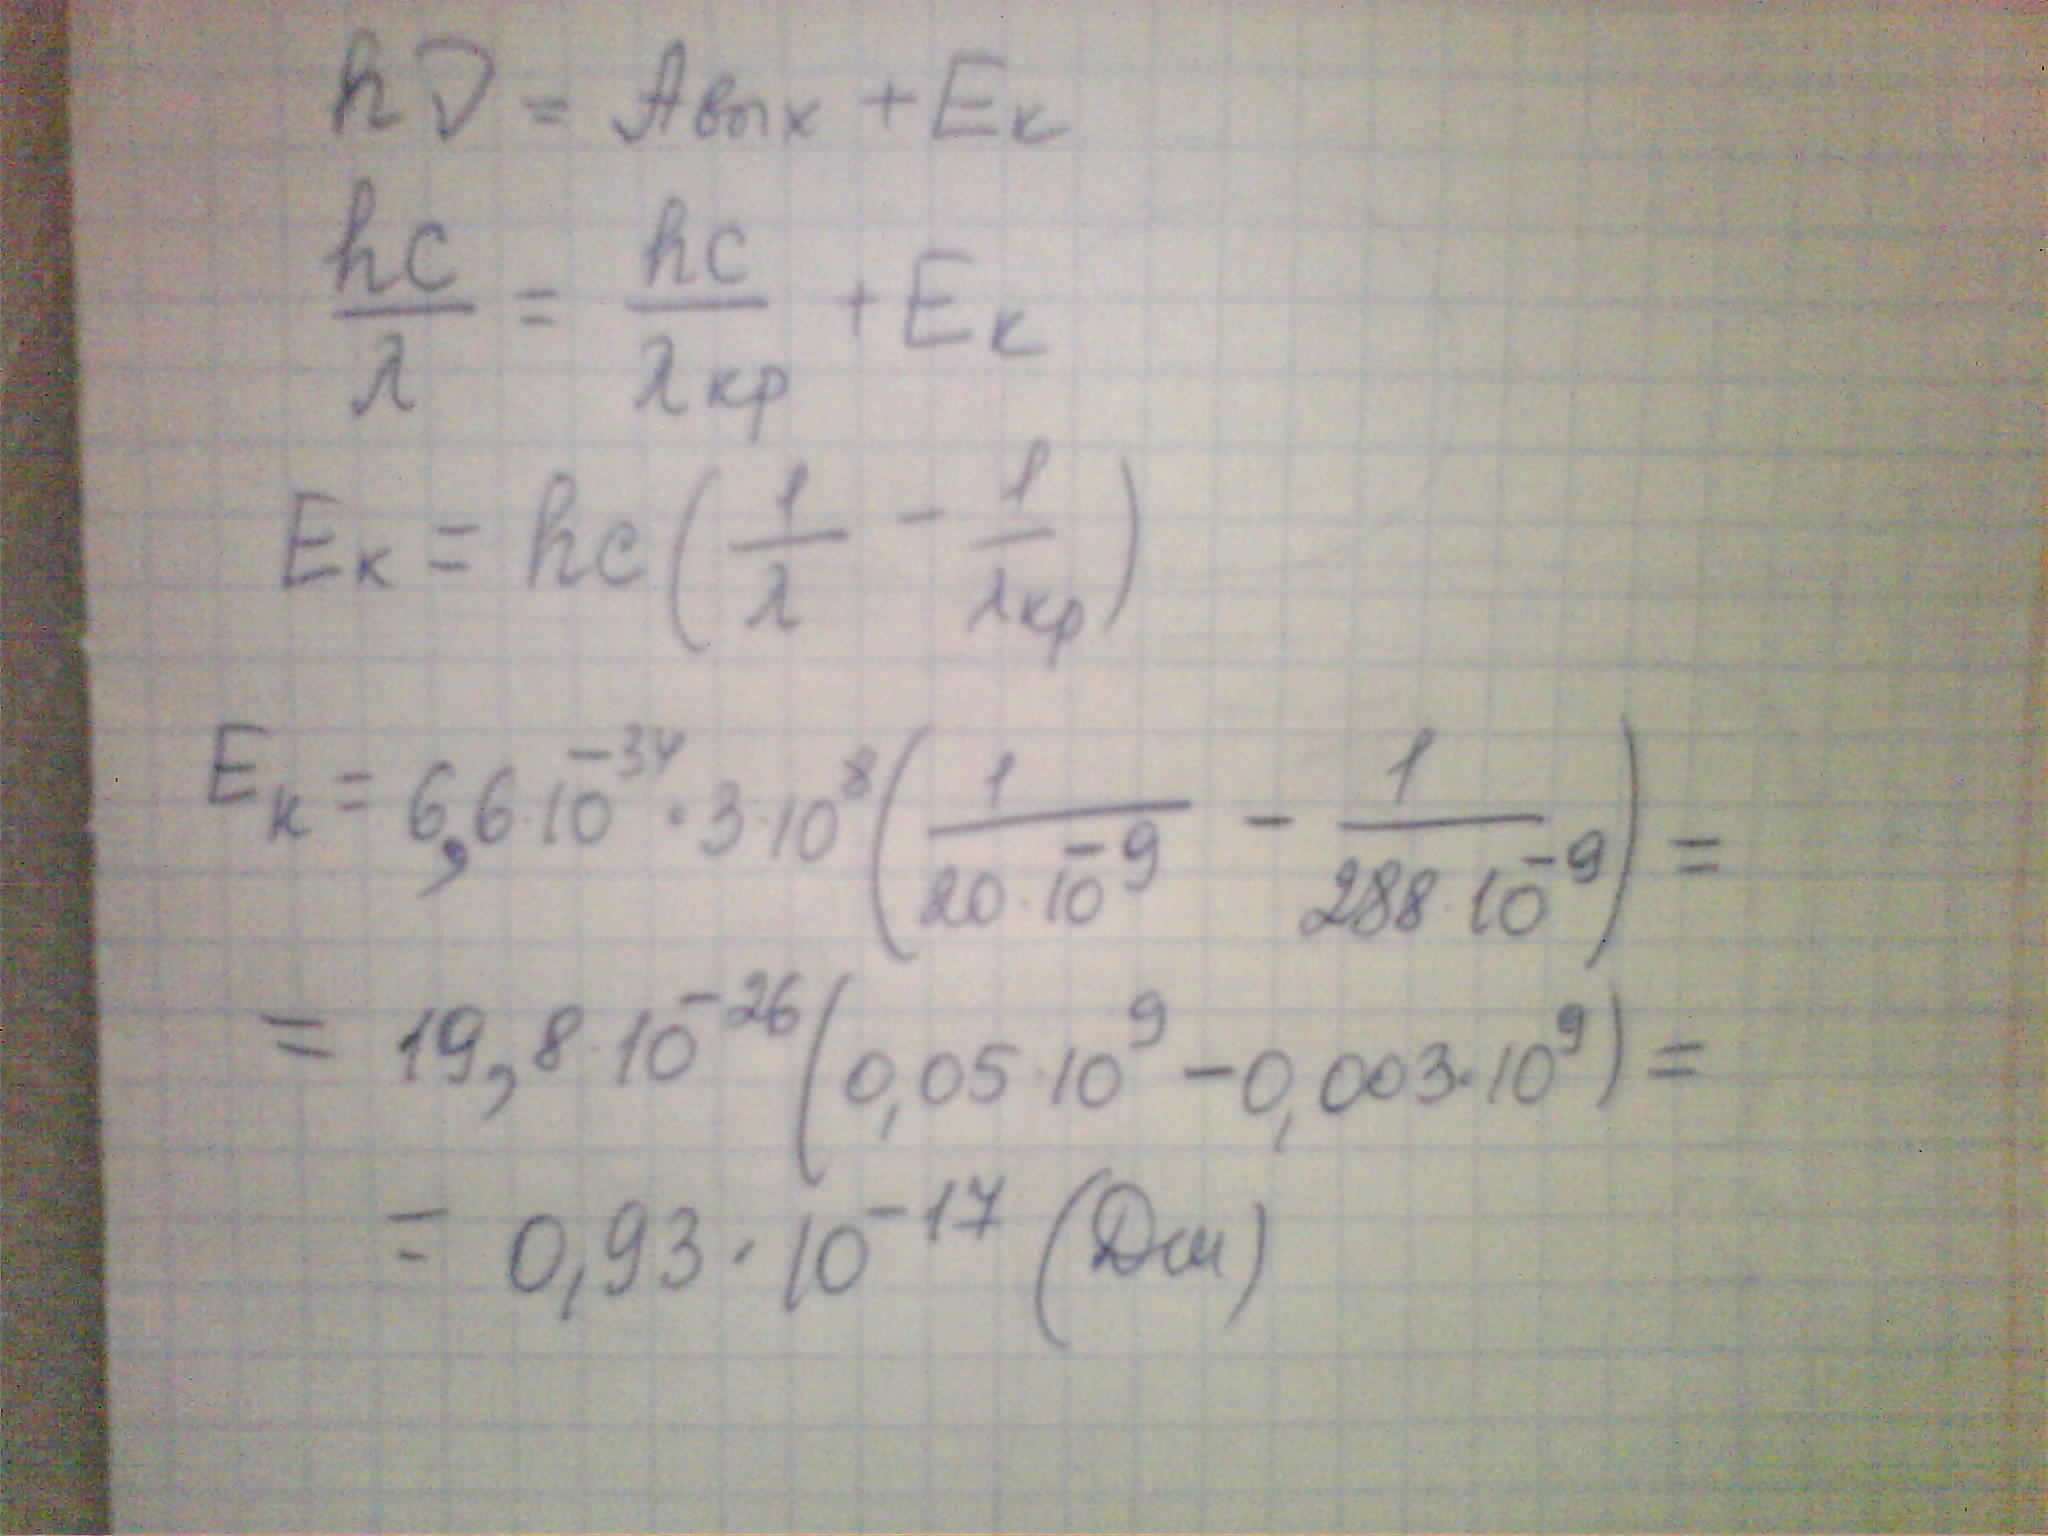 hν = Aвых + Eк
hc/λ = hc/λкр + Eк
Eк = hc(1/λ - 1/λкр)
Eк = 6,6·10⁻³⁴·3·10⁸(1/20·10⁻⁹ - 1/288·10⁻⁹) =
= 19,8·10⁻²⁶(0,05·10⁹ - 0,003·10⁹) =
= 0,93·10⁻¹⁷ (Дж)